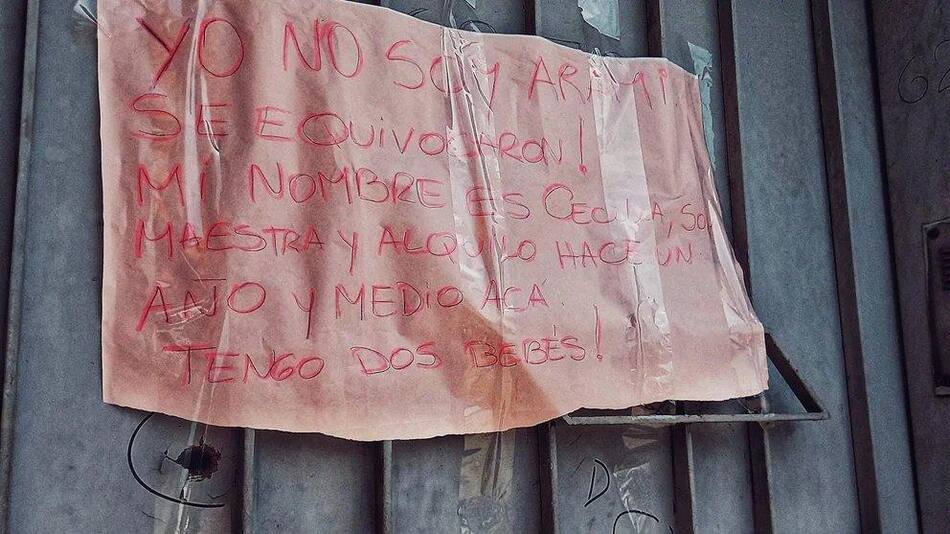 YO NO SOY ARAMI.
SE EQUIVOCARON!
MI NOMBRE ES CECILIA, SOY
MAESTRA Y ALQUILO HACE UN
AÑO Y MEDIO ACÁ.
TENGO DOS BEBÉS!